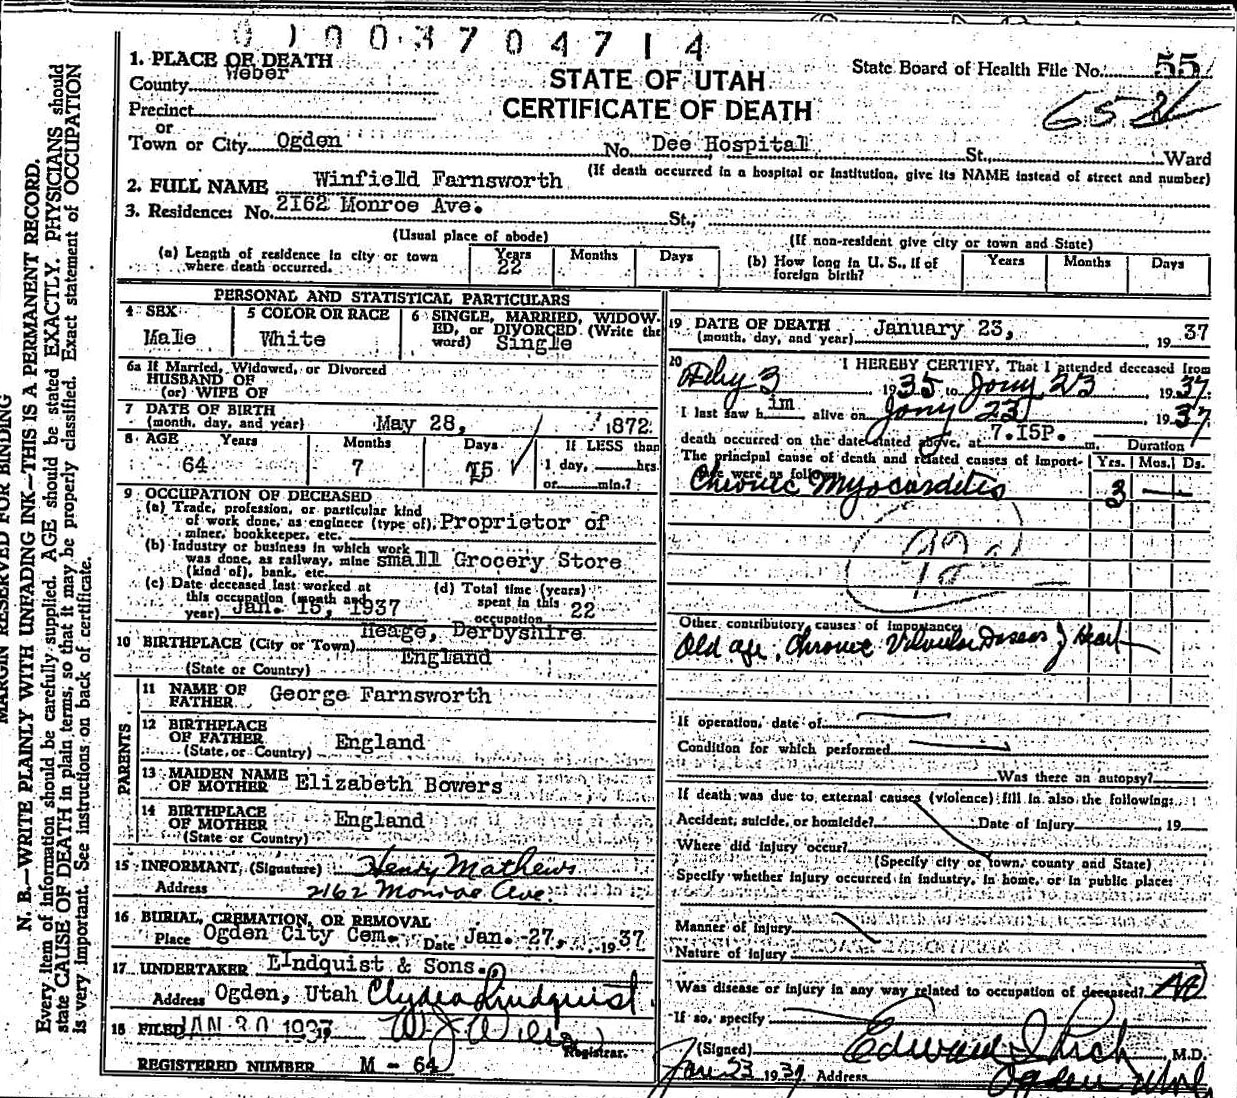 01003704714
1. PLACE OF DEATH
County Weber
Precinct
or
Town or City Ogden No. Dee Hospital St., Ward
STATE OF UTAH
CERTIFICATE OF DEATH
State Board of Health File No. 55
(If death occurred in a hospital or institution, give its NAME instead of street and number)
2. FULL NAME Winfield Farnsworth
3. Residence: No. 2162 Monroe Ave. St.,
(Usual place of abode)
(If non-resident give city or town and State)
(a) Length of residence in city or town where death occurred. Years 22 Months Days
(b) How long in U. S., if of foreign birth? Years Months Days
PERSONAL AND STATISTICAL PARTICULARS
4 SEX Male
5 COLOR OR RACE White
6 SINGLE, MARRIED, WIDOW-
ED, or DIVORCED (Write the
word) Single
6a If Married, Widowed, or Divorced
HUSBAND OF
(or) WIFE OF
7 DATE OF BIRTH
(month, day, and year) May 28, 1872
8 AGE Years 64 Months 7 Days 15
If LESS than
1 day, hrs.
or min.?
9 OCCUPATION OF DECEASED
(a) Trade, profession, or particular kind
of work done, as engineer (type of), Proprietor of
miner, bookkeeper, etc.
(b) Industry or business in which work
was done, as railway, mine small Grocery Store
(kind of), bank, etc.
(c) Date deceased last worked at
this occupation (month and
year) Jan. 15, 1937
(d) Total time (years)
spent in this 22
occupation
10 BIRTHPLACE (City or Town) Heage, Derbyshire
(State or Country) England
PARENTS
11 NAME OF
FATHER George Farnsworth
12 BIRTHPLACE
OF FATHER England
(State or Country)
13 MAIDEN NAME
OF MOTHER Elizabeth Bowers
14 BIRTHPLACE
OF MOTHER England
(State or Country)
15 INFORMANT, (Signature) Henry Mathews
Address 2162 Monroe Ave.
16 BURIAL, CREMATION, OR REMOVAL
Place Ogden City Cem. Date Jan. 27, 1937
17 UNDERTAKER Lindquist & Sons.
Address Ogden, Utah Clyde Lindquist
18 FILED JAN 30 1937
Registrar.
REGISTERED NUMBER M - 64
19 DATE OF DEATH January 23, 1937
(month, day, and year)
20 I HEREBY CERTIFY, That I attended deceased from
3 1935 to Jany 23 1937
I last saw him alive on Jany 23 1937
death occurred on the date stated above, at 7.15P. m. Duration
The principal cause of death and related causes of import-
ance were as follows: Yrs. Mos. Ds.
Chronic Myocarditis 3
92
Other contributory causes of importance:
Old age, Chronic Valvular Disease of Heart
If operation, date of
Condition for which performed
Was there an autopsy?
If death was due to external causes (violence) fill in also the following:
Accident, suicide, or homicide? Date of injury , 19
Where did injury occur?
(Specify city or town, county and State)
Specify whether injury occurred in industry, in home, or in public place:
Manner of injury
Nature of injury
Was disease or injury in any way related to occupation of deceased? No
If so, specify
(Signed) Edward I Rich, M.D.
Jan 23 1937 Address Ogden Utah
MARGIN RESERVED FOR BINDING
N. B.—WRITE PLAINLY WITH UNFADING INK—THIS IS A PERMANENT RECORD.
Every item of information should be carefully supplied. AGE should be stated EXACTLY. PHYSICIANS should
state CAUSE OF DEATH in plain terms, so that it may be properly classified. Exact statement of OCCUPATION
is very important. See instructions on back of certificate.